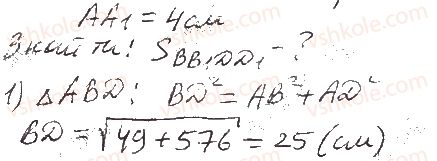 AA₁ = 4см
Знайти: S_BB₁DD₁ - ?
1) △ABD: BD² = AB² + AD²
BD = √49 + 576 = 25 (см)